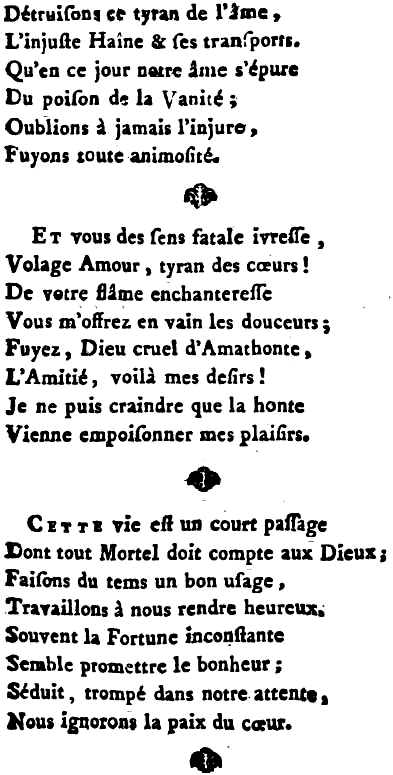 Détruiſons ce tyran de l'âme,
L'injuſte Haîne & ſes tranſports.
Qu'en ce jour notre âme s'épure
Du poiſon de la Vanité;
Oublions à jamais l'injure,
Fuyons toute animoſité.
ET vous des ſens fatale ivreſſe,
Volage Amour, tyran des cœurs!
De votre flâme enchantereſſe
Vous m'offrez en vain les douceurs;
Fuyez, Dieu cruel d'Amathonte,
L'Amitié, voilà mes deſirs!
Je ne puis craindre que la honte
Vienne empoiſonner mes plaiſirs.
CETTE vie eſt un court paſſage
Dont tout Mortel doit compte aux Dieux;
Faiſons du tems un bon uſage,
Travaillons à nous rendre heureux.
Souvent la Fortune inconſtante
Semble promettre le bonheur;
Séduit, trompé dans notre attente,
Nous ignorons la paix du cœur.